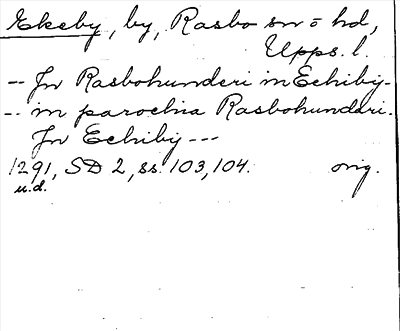 Ekeby, by, Rasbo sn o hd,
Upps. l.
-- In Rasbohunderi in Echiby -
-- in parochia Rasbohunderi.
In Echiby ---
1291, SD 2, ss. 103, 104. orig.
u.d.